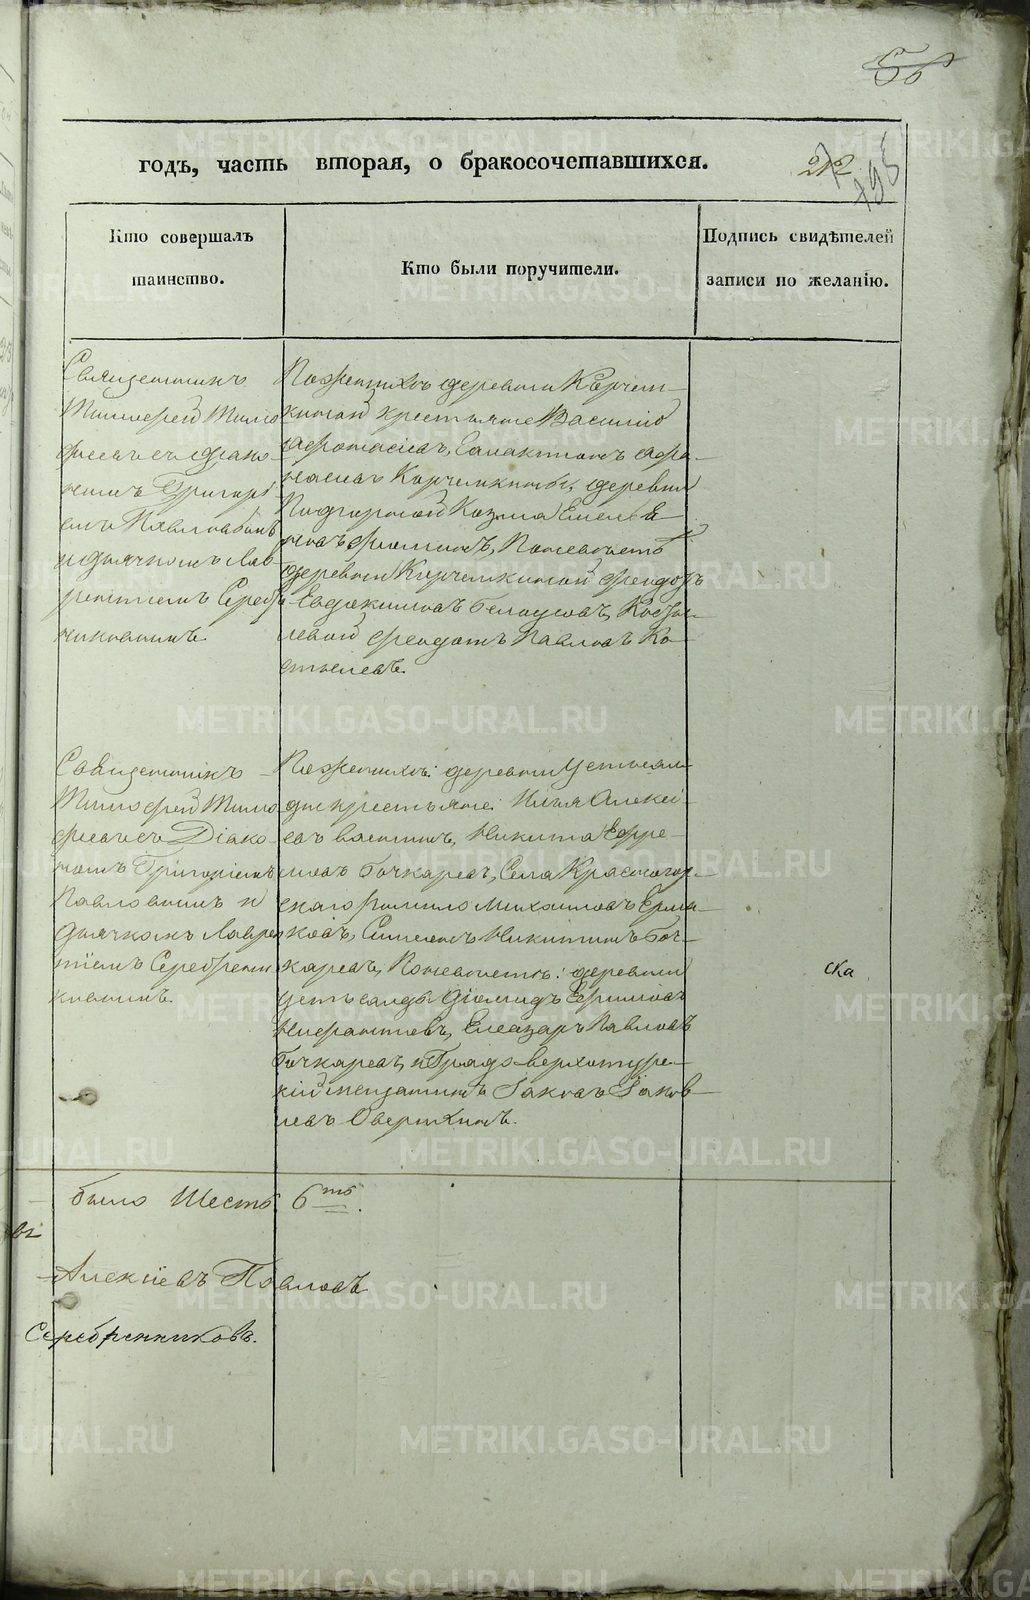 56
годъ, часть вторая, о бракосочетавшихся.
212
198
Кто совершалъ
таинство.
Кто были поручители.
Подпись свидѣтелей
записи по желанію.
Священникъ
Тимофей Тимо
феевъ съ діако
номъ Григорі
емъ Павловымъ
и дьячкомъ Лав
рентіемъ Сереб
никовымъ.
По женихѣ деревни Корчем
киной крестьяне Василій
Афонасіевъ, Галактіонъ Афо
насіевъ Корчемкины, деревни
Подгорной Козма Емелья
новъ Фоминъ, По невѣстѣ
деревни Корчемкиной Феодотъ
Евдокимовъ Белоусовъ, Косты
левой Феодотъ Павловъ Ко
стылевъ.
Священникъ
Тимофей Тимо
феевъ съ Діако
номъ Григоріемъ
Павловымъ и
дьячкомъ Лаврен
тіемъ Серебрени
ковымъ.
По женихѣ: деревни Устьсал
ды крестьяне: Илья Алексі
евъ Никита Ефре
мовъ Бочкаревъ, Села Красногор
скаго Михаиловъ Ерми
ковъ, Симеонъ Никитинъ Боч
каревъ, По невѣстѣ: деревни
Устьсалды Діомидъ Ефимовъ
Нифантовъ, Елеазаръ Павловъ
Бочкаревъ, и Градо-верхотурс
кій мещанинъ Іаковъ Іаков
левъ Оверткинъ.
ска
было Шесть 6ть.
Алексіевъ Павловъ
Серебренниковъ.
METRIKI.GASO-URAL.RU